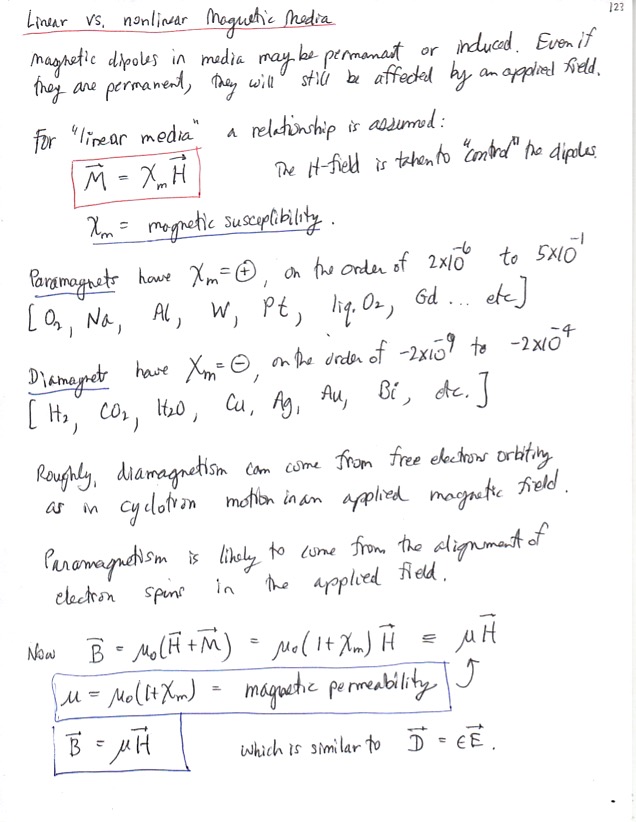 123
Linear vs. nonlinear Magnetic Media
Magnetic dipoles in media may be permanant or induced. Even if
they are permanent, they will still be affected by an applied field.
For "linear media" a relationship is assumed:
M⃗ = χm H⃗ The H-field is taken to "control" the dipoles.
χm = magnetic susceptibility.
Paramagnets have χm = ⊕, on the order of 2×10⁻⁶ to 5×10⁻¹
[O₂, Na, Al, W, Pt, liq. O₂, Gd ... etc]
Diamagnet have χm = ⊖, on the order of -2×10⁻⁹ to -2×10⁻⁴
[H₂, CO₂, H₂O, Cu, Ag, Au, Bi, etc.]
Roughly, diamagnetism can come from free electrons orbiting
as in cyclotron motion in an applied magnetic field.
Paramagnetism is likely to come from the alignment of
electron spins in the applied field.
Now B⃗ = μ₀(H⃗ + M⃗) = μ₀(1+χm) H⃗ ≡ μH⃗
μ = μ₀(1+χm) = magnetic permeability
B⃗ = μH⃗ which is similar to D⃗ = ϵE⃗.